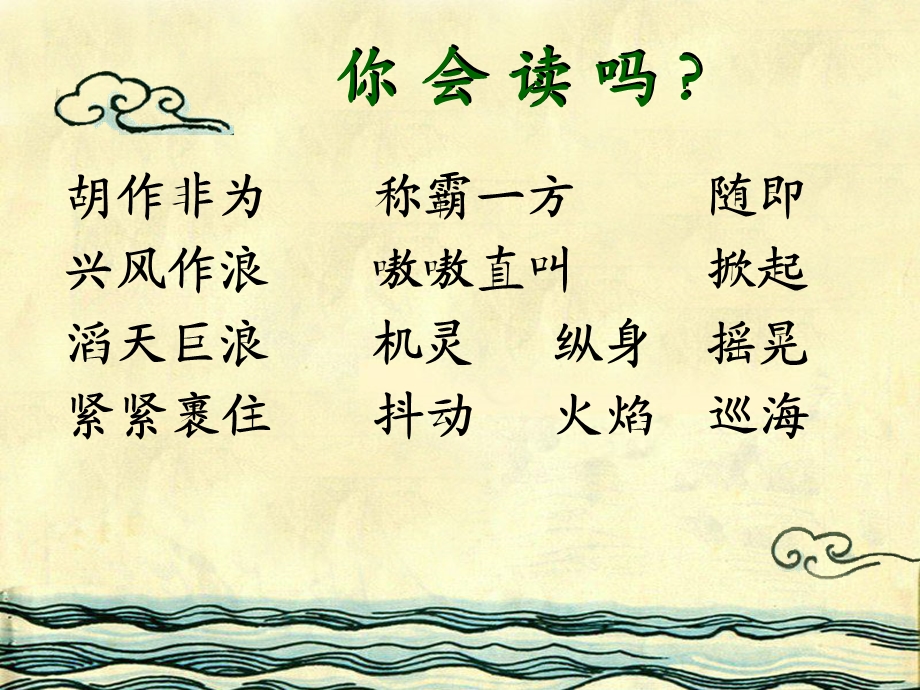 你会读吗?
胡作非为 称霸一方 随即
兴风作浪 嗷嗷直叫 掀起
滔天巨浪 机灵 纵身 摇晃
紧紧裹住 抖动 火焰 巡海